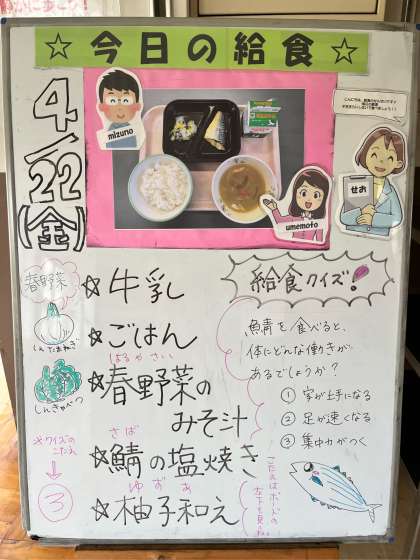 ☆ 今日の給食 ☆
4/22(金)
mizuno
umemoto
せお
☆牛乳
☆ごはん
はるやさい
☆春野菜の
みそ汁
さば
☆鯖の塩焼き
ゆずあ
☆柚子和え
春野菜
しんたまねぎ
しんきゃべつ
☆クイズの
こたえ
↓
③
給食クイズ!
魚鯖を食べると、
体にどんな働きが
あるでしょうか?
① 字が上手になる
② 足が速くなる
③ 集中力がつく
こたえはボードの
左下を見てね